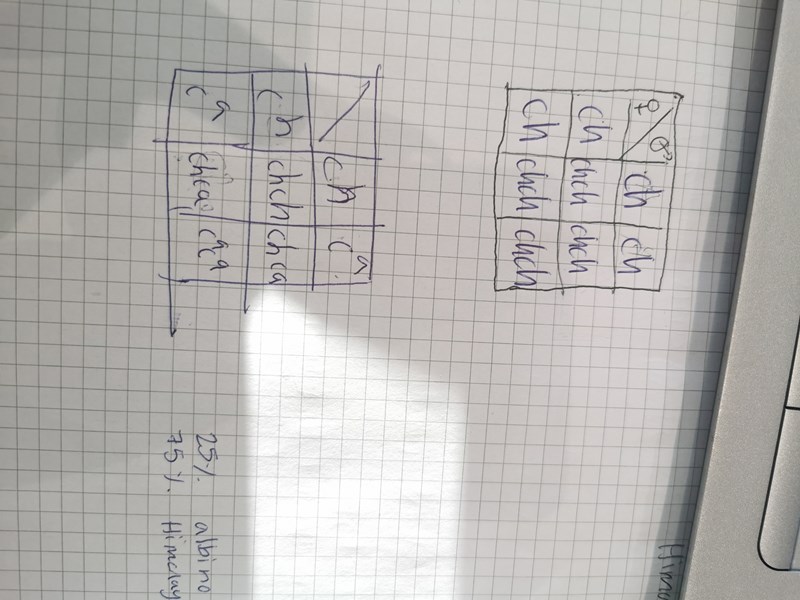 Him
♀ ♂ ch ch
ch chch chch
ch chch chch
ch cᵃ
ch chch chca
ca chca cᵃcᵃ
25% albino
75% Himalay